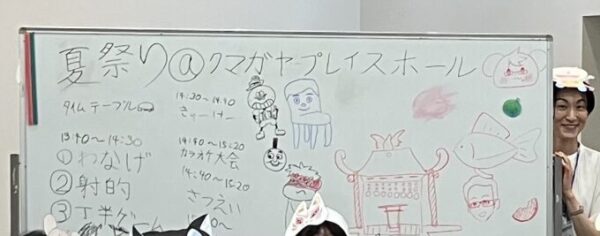 夏祭り@クマガヤプレイスホール
タイムテーブル
13:40～14:30
①わなげ
②射的
③丁半ゲーム
14:30～14:40
14:40～15:20
カラオケ大会
14:40～15:20
さつえい